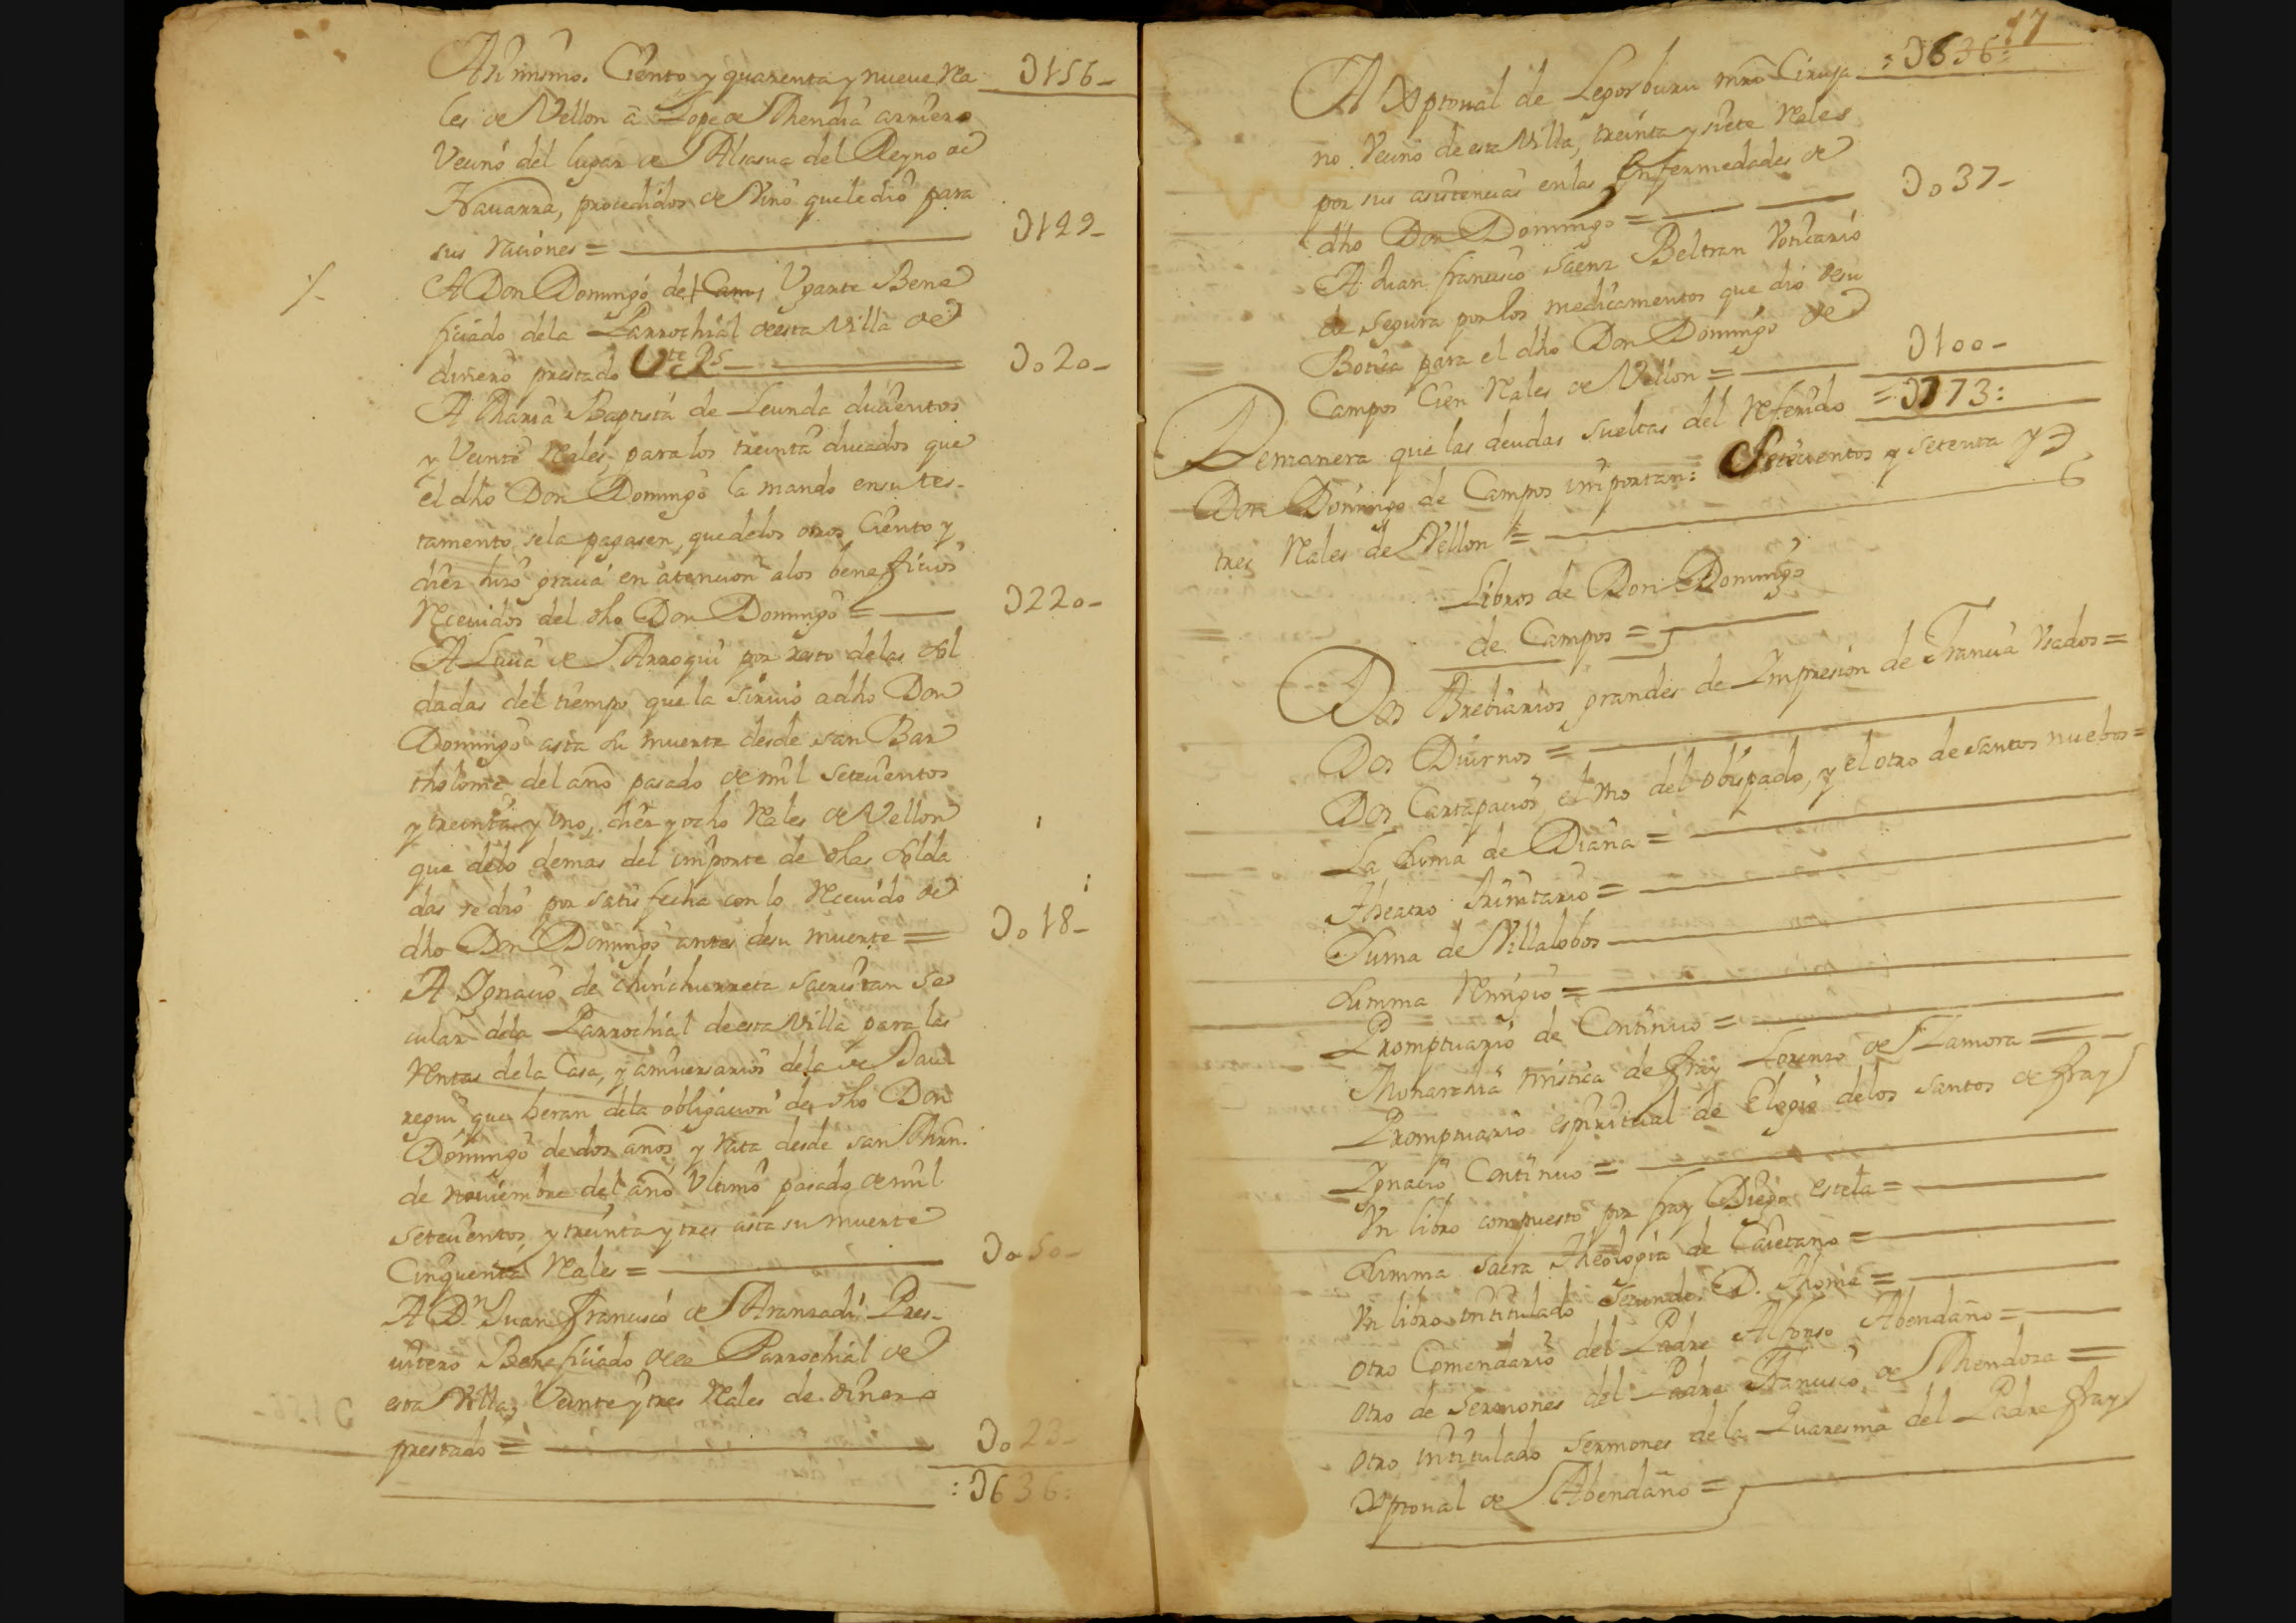 Asi mismo. Ciento y quarenta y nueve Rea   0156-
les de Vellon â Lope de Mendia arriero
Vecino del lugar de Alsasua del Reyno de
Navarra, procedidos de Vino que le dio para
sus raciones =   0149-
A Don Domingo de Ugarte Bene
ficiado dela Parrochial de esta Villa de
dinero prestado Vte Rs   0020-
A Maria Baptista de Leunda ducientos
y Veinte Reales, para los treinta ducados que
el dho Don Domingo la mando en su tes-
tamento se la pagasen, que delos otros Ciento y
diez hizo gracia en atencion alos beneficios
Recevidos del dho Don Domingo =   0220-
A Lucia de Arregui por resto delas sol
dadas del tiempo que la sirvio a dho Don
Domingo asta su muerte desde san Bar
tholome del año pasado de mil setecientos
y treinta y Uno, diez y ocho Reales de Vellon
que delo demas del importe de dhas solda
das se dio por satisfecha con lo Recevido de
dho Don Domingo antes de su muerte =   0018-
A Ignacio de chinchurreta sacristan se
cular dela Parrochial de esta Villa para las
Rentas dela Casa, y aniversarios dela de
que heran dela obligacion de dho Don
Domingo de dos años y Rata desde san Mrn.
de noviembre del año Ultimo pasado de mil
setecientos, y treinta y tres asta su muerte
Cinquenta Reales =   0050-
A Dn. Juan Francisco de Aranzadi Pres-
vitero Beneficiado dela Parrochial de
esta Villa, Veinte y tres Reales de dinero
prestado =   0023-
:0636:
17
:0636:
A Xptoval de Legorburu mro Ciruja
no Vecino de esta Villa, treinta y siete Reales
por sus asistencias en las Enfermedades de
dho Don Domingo =   0037-
A Juan francisco Saenz Beltran Voticario
de Segura por los medicamentos que dio desu
Botica para el dho Don Domingo de
Campos Cien Reales de Vellon =   0100-
=0773:
Demanera que las deudas sueltas del Referido
Don Domingo de Campos importan: Setecientos y setenta y
tres Reales de Vellon =
Libros de Don Domingo
de Campos =
Dos Brebiarios grandes de Impresion de Francia Usados =
Dos Diurnos =
Dos Cartapacios, el Uno del obispado, y el otro de santos nuebos =
La suma de Diana =
Theatro trinitario =
Suma de Villalobos
Summa Remigio =
Promptuario de Continuo =
Monarchia mistica de fray Lorenzo de Zamora =
Promptuario espiritual de Elogio delos santos de fray
Ignacio Continuo =
Un libro compuesto por fray Diego estela =
Summa sacra Theologia de Caietano =
Un libro intitulado Secunde D. Thome =
otro Comendario del Padre Alfonso Abendaño =
otro de sermones del Padre Francisco de Mendoza =
otro intitulado sermones dela Quaresma del Padre fray
Xptoval de Abendaño =